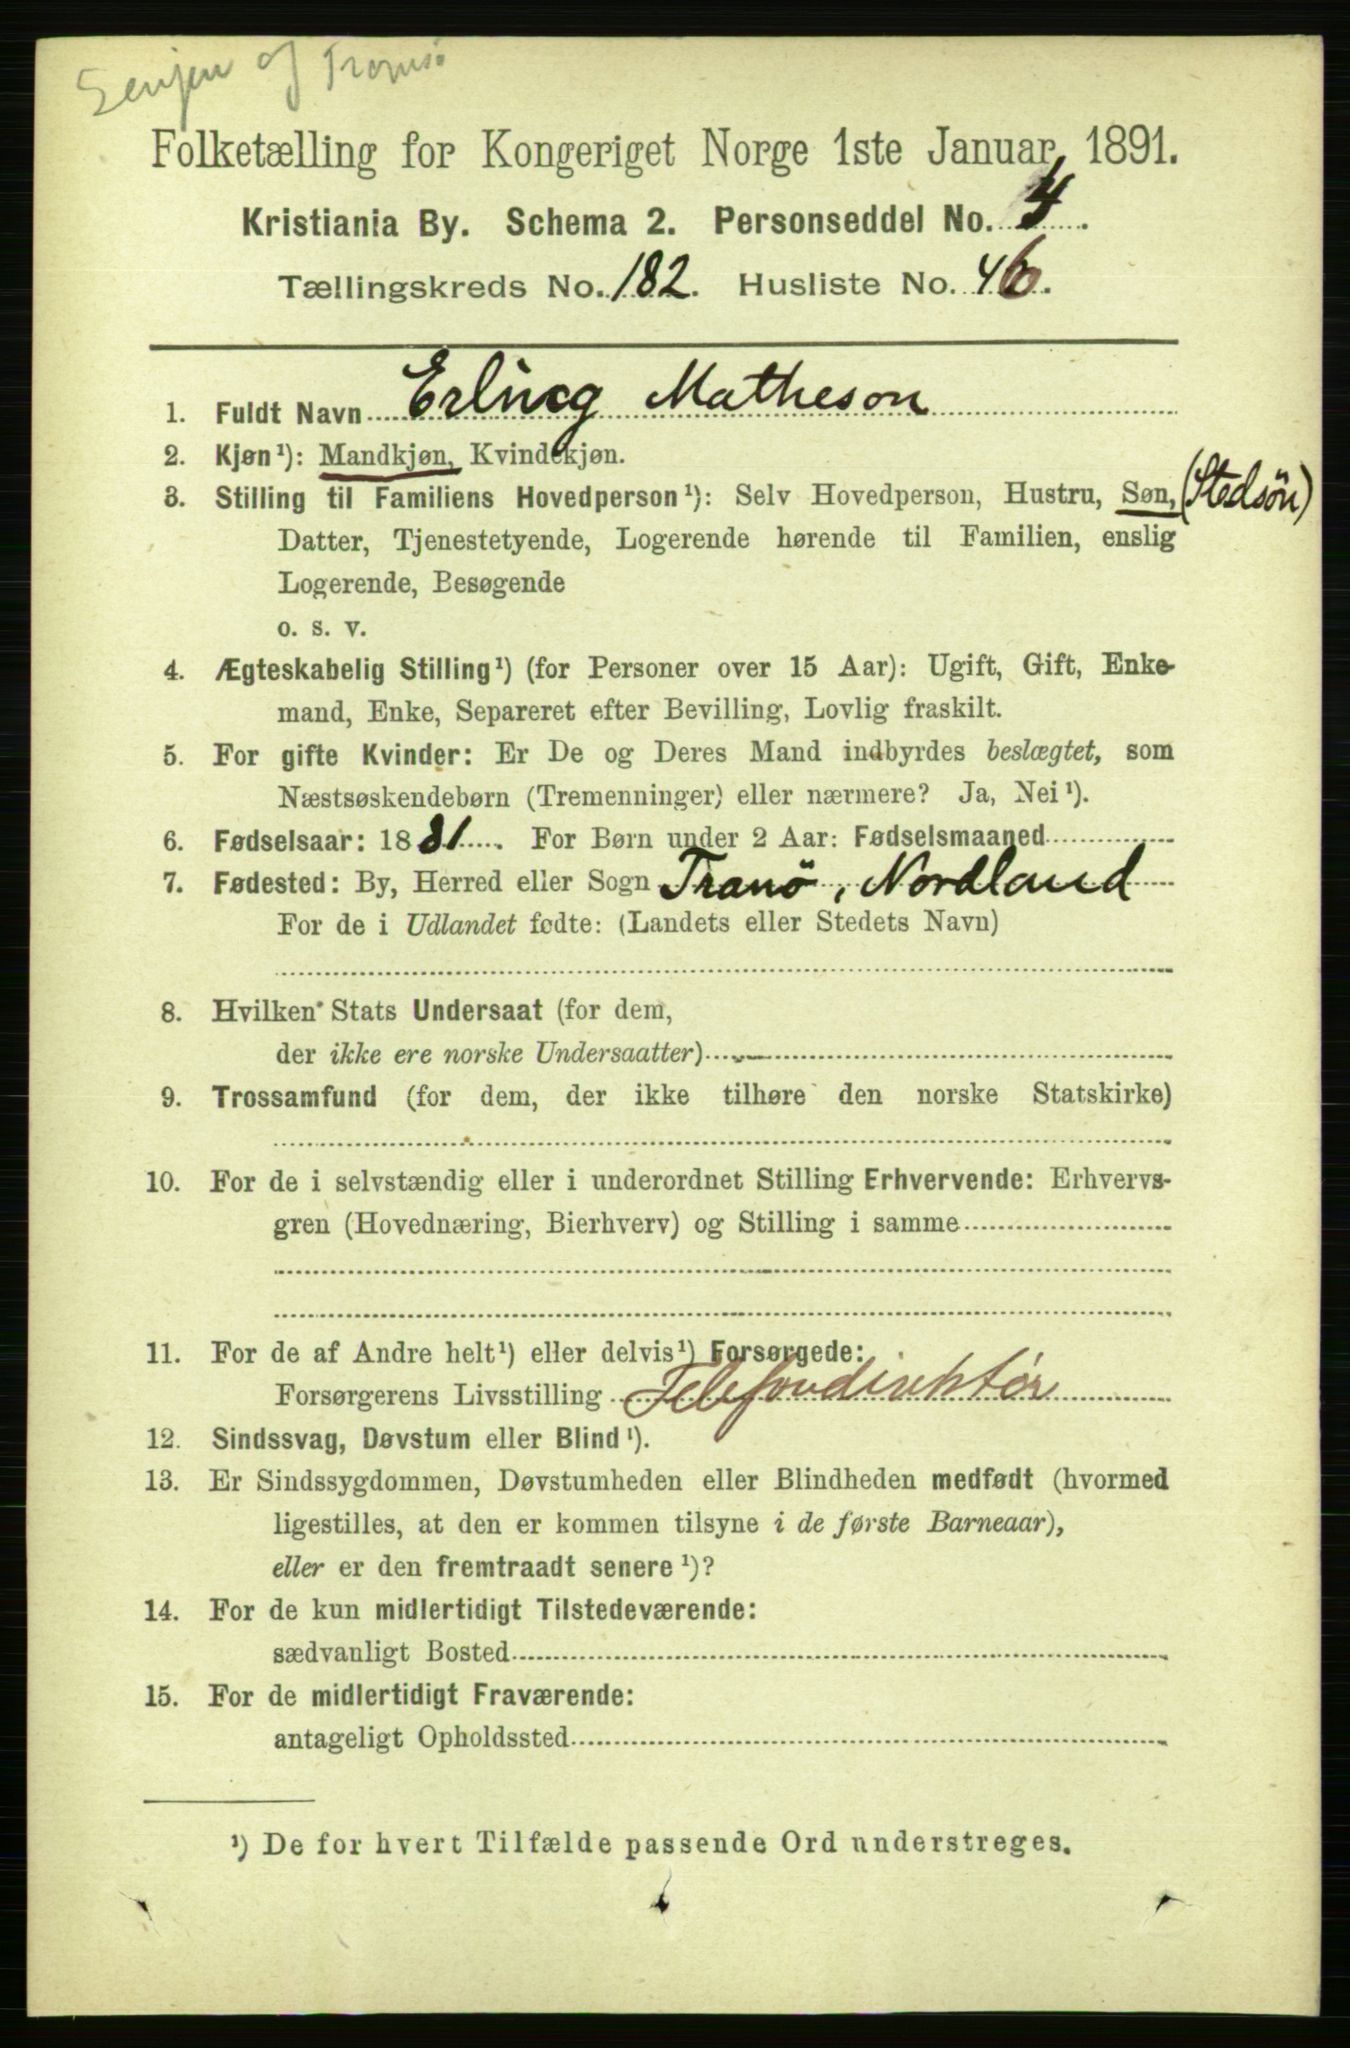 Senjen og Tromsö
Folketælling for Kongeriget Norge 1ste Januar 1891.
Kristiania By. Schema 2. Personseddel No. 4.
Tællingskreds No. 182. Husliste No. 46.
1. Fuldt Navn Erling Matheson
2. Kjøn¹): Mandkjøn, Kvindekjøn.
3. Stilling til Familiens Hovedperson¹): Selv Hovedperson, Hustru, Søn, (Stedsön)
Datter, Tjenestetyende, Logerende hørende til Familien, enslig
Logerende, Besøgende
o. s. v.
4. Ægteskabelig Stilling¹) (for Personer over 15 Aar): Ugift, Gift, Enke-
mand, Enke, Separeret efter Bevilling, Lovlig fraskilt.
5. For gifte Kvinder: Er De og Deres Mand indbyrdes beslægtet, som
Næstsøskendebørn (Tremenninger) eller nærmere? Ja, Nei¹).
6. Fødselsaar: 1881. For Børn under 2 Aar: Fødselsmaaned
7. Fødested: By, Herred eller Sogn Tranö, Nordland
For de i Udlandet fødte: (Landets eller Stedets Navn)
8. Hvilken Stats Undersaat (for dem,
der ikke ere norske Undersaatter)
9. Trossamfund (for dem, der ikke tilhøre den norske Statskirke)
10. For de i selvstændig eller i underordnet Stilling Erhvervende: Erhvervs-
gren (Hovednæring, Bierhverv) og Stilling i samme
11. For de af Andre helt¹) eller delvis¹) Forsørgede:
Forsørgerens Livsstilling Telefondirektór
12. Sindssvag, Døvstum eller Blind¹).
13. Er Sindssygdommen, Døvstumheden eller Blindheden medfødt (hvormed
ligestilles, at den er kommen tilsyne i de første Barneaar),
eller er den fremtraadt senere¹)?
14. For de kun midlertidigt Tilstedeværende:
sædvanligt Bosted
15. For de midlertidigt Fraværende:
antageligt Opholdssted
¹) De for hvert Tilfælde passende Ord understreges.